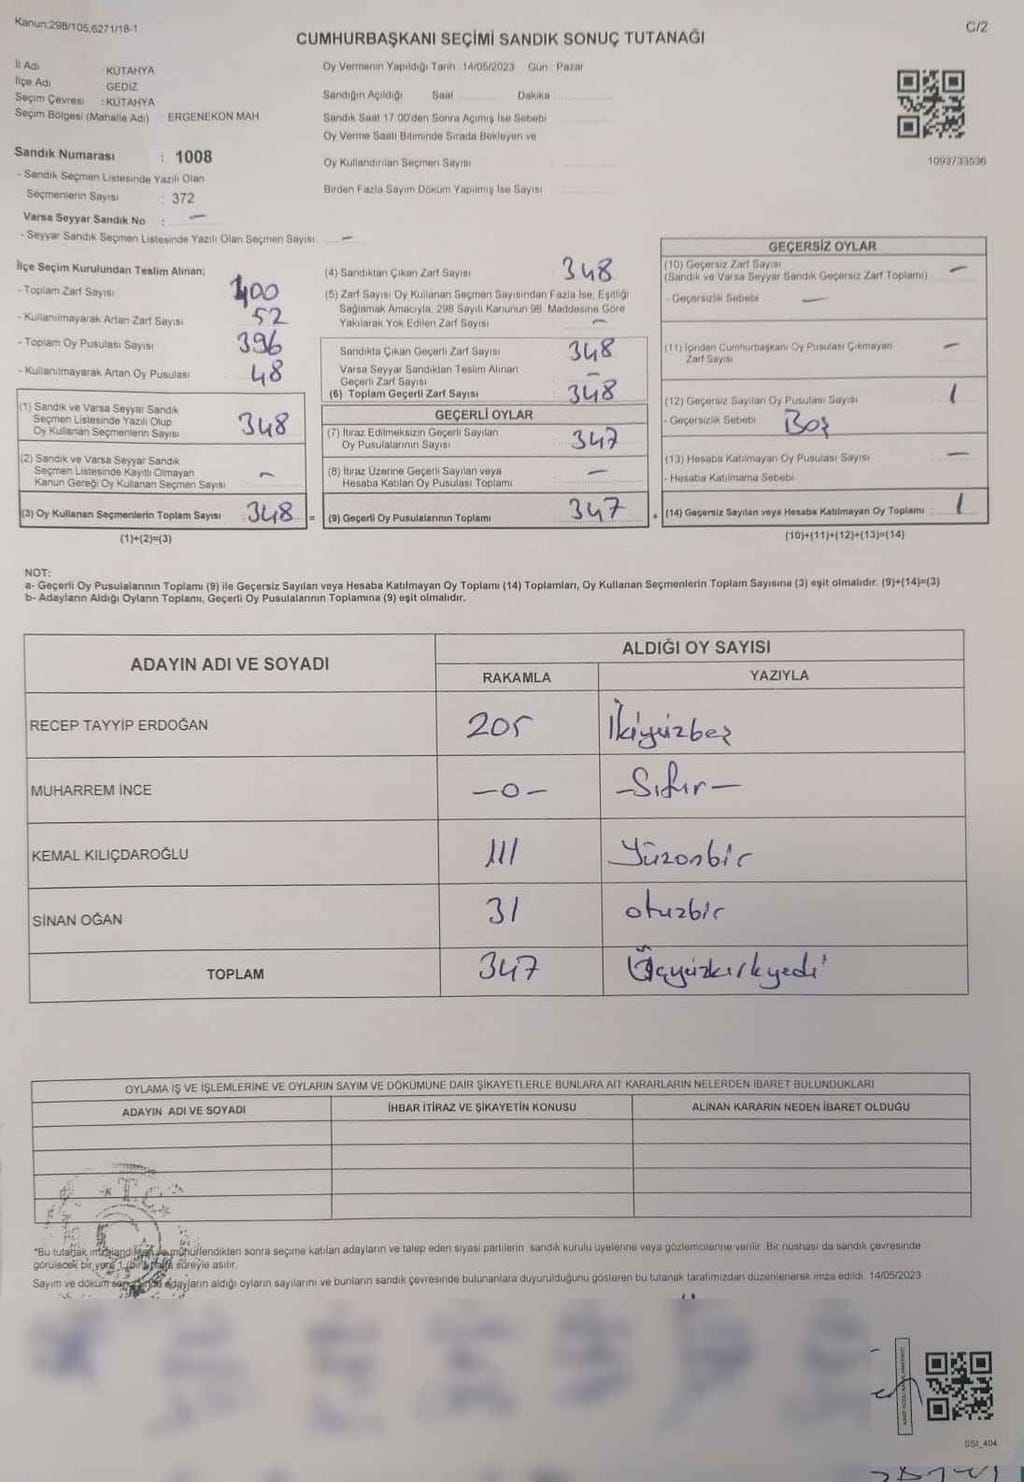 Kanun:298/105,6271/18-1
C/2
CUMHURBAŞKANI SEÇİMİ SANDIK SONUÇ TUTANAĞI
İl Adı : KÜTAHYA
İlçe Adı : GEDİZ
Seçim Çevresi : KÜTAHYA
Seçim Bölgesi (Mahalle Adı) ERGENEKON MAH.
Sandık Numarası : 1008
- Sandık Seçmen Listesinde Yazılı Olan
Seçmenlerin Sayısı : 372
Varsa Seyyar Sandık No : —
- Seyyar Sandık Seçmen Listesinde Yazılı Olan Seçmen Sayısı —
Oy Vermenin Yapıldığı Tarih :14/05/2023 Gün : Pazar
Sandığın Açıldığı Saat Dakika
Sandık Saat 17.00'den Sonra Açılmış İse Sebebi
Oy Verme Saati Bitiminde Sırada Bekleyen ve
Oy Kullandırılan Seçmen Sayısı
Birden Fazla Sayım Döküm Yapılmış İse Sayısı
1093733536
İlçe Seçim Kurulundan Teslim Alınan;
- Toplam Zarf Sayısı 400
- Kullanılmayarak Artan Zarf Sayısı 52
- Toplam Oy Pusulası Sayısı 396
- Kullanılmayarak Artan Oy Pusulası 48
(1) Sandık ve Varsa Seyyar Sandık
Seçmen Listesinde Yazılı Olup
Oy Kullanan Seçmenlerin Sayısı 348
(2) Sandık ve Varsa Seyyar Sandık
Seçmen Listesinde Kayıtlı Olmayan
Kanun Gereği Oy Kullanan Seçmen Sayısı —
(3) Oy Kullanan Seçmenlerin Toplam Sayısı 348 =
(1)+(2)=(3)
(4) Sandıktan Çıkan Zarf Sayısı 348
(5) Zarf Sayısı Oy Kullanan Seçmen Sayısından Fazla İse, Eşitliği
Sağlamak Amacıyla, 298 Sayılı Kanunun 98. Maddesine Göre
Yakılarak Yok Edilen Zarf Sayısı —
Sandıkta Çıkan Geçerli Zarf Sayısı 348
Varsa Seyyar Sandıktan Teslim Alınan
Geçerli Zarf Sayısı —
(6) Toplam Geçerli Zarf Sayısı 348
GEÇERLİ OYLAR
(7) İtiraz Edilmeksizin Geçerli Sayılan
Oy Pusulalarının Sayısı 347
(8) İtiraz Üzerine Geçerli Sayılan veya
Hesaba Katılan Oy Pusulası Toplamı —
(9) Geçerli Oy Pusulalarının Toplamı 347 +
GEÇERSİZ OYLAR
(10) Geçersiz Zarf Sayısı —
(Sandık ve Varsa Seyyar Sandık Geçersiz Zarf Toplamı)
- Geçersizlik Sebebi —
(11) İçinden Cumhurbaşkanı Oy Pusulası Çıkmayan —
Zarf Sayısı
(12) Geçersiz Sayılan Oy Pusulası Sayısı 1
- Geçersizlik Sebebi Boş
(13) Hesaba Katılmayan Oy Pusulası Sayısı —
- Hesaba Katılmama Sebebi
(14) Geçersiz Sayılan veya Hesaba Katılmayan Oy Toplamı : 1
(10)+(11)+(12)+(13)=(14)
NOT:
a- Geçerli Oy Pusulalarının Toplamı (9) ile Geçersiz Sayılan veya Hesaba Katılmayan Oy Toplamı (14) Toplamları, Oy Kullanan Seçmenlerin Toplam Sayısına (3) eşit olmalıdır. (9)+(14)=(3)
b- Adayların Aldığı Oyların Toplamı, Geçerli Oy Pusulalarının Toplamına (9) eşit olmalıdır.
ADAYIN ADI VE SOYADI ALDIĞI OY SAYISI
RAKAMLA YAZIYLA
RECEP TAYYİP ERDOĞAN 205 İkiyüzbeş
MUHARREM İNCE —0— —Sıfır—
KEMAL KILIÇDAROĞLU 111 Yüzonbir
SİNAN OĞAN 31 otuzbir
TOPLAM 347 Üçyüzkırkyedi
OYLAMA İŞ VE İŞLEMLERİNE VE OYLARIN SAYIM VE DÖKÜMÜNE DAİR ŞİKAYETLERLE BUNLARA AİT KARARLARIN NELERDEN İBARET BULUNDUKLARI
ADAYIN ADI VE SOYADI İHBAR İTİRAZ VE ŞİKAYETİN KONUSU ALINAN KARARIN NEDEN İBARET OLDUĞU
*Bu tutanak imzalandıktan ve mühürlendikten sonra seçime katılan adayların ve talep eden siyasi partilerin sandık kurulu üyelerine veya gözlemcilerine verilir. Bir nüshası da sandık çevresinde
görülecek bir yere 1 (bir) hafta süreyle asılır.
Sayım ve döküm sonucunda adayların aldığı oyların sayılarını ve bunların sandık çevresinde bulunanlara duyurulduğunu gösteren bu tutanak tarafımızdan düzenlenerek imza edildi. 14/05/2023
SS1_404